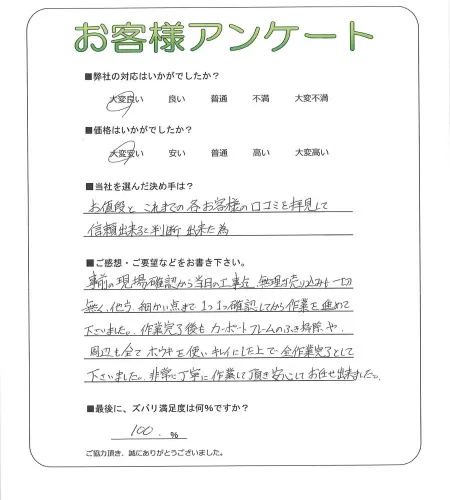 お客様アンケート
■弊社の対応はいかがでしたか？
大変良い 良い 普通 不満 大変不満
■価格はいかがでしたか？
大変安い 安い 普通 高い 大変高い
■当社を選んだ決め手は？
お値段と これまでの各お客様の口コミを拝見して
信頼出来ると判断出来た為
■ご感想・ご要望などをお書き下さい。
事前の現場確認から当日の工事迄、無理な売り込みも一切
無く、他方、細かい点まで1つ1つ確認してから作業を進めて
下さいました。作業完了後もカーポートフレームのふき掃除や、
周辺も全てホウキを使いキレイにした上で全作業完了として
下さいました。非常に丁寧に作業して頂き安心してお任せ出来ました。
■最後に、ズバリ満足度は何％ですか？
100 ％
ご協力頂き、誠にありがとうございました。